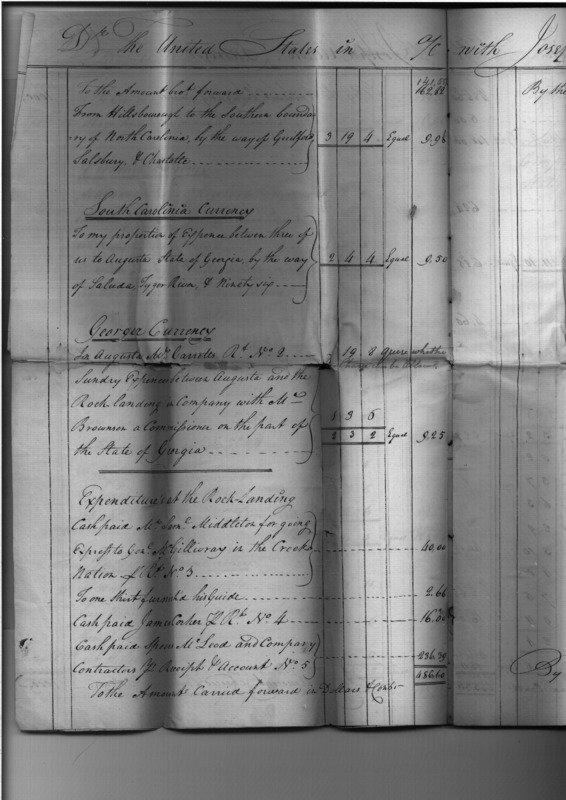 Dr. the United States in a/c with Josep
To the Amount brot. forward 162.82
From Hillsborough to the Southern bounda
ry of North Carolinia, by the way of Guilford, 3 19 4 Equal 9.98
Salsbury, & Charlotte
South Carolinia Currency
To my proportion of Expence between three of
us to Augusta State of Georgia, by the way 2 4 4 Equal 9.50
of Saluda, Tyger River, & Ninety six
Georgia Currency
In Augusta Mrs. Garretts Rt. No 2 19 8 quere whether
Sundry Expences between Augusta and the
Rock landing a Company with Mr.
Brownson a Commissioner on the part of 2 3 2 Equal 9.25
the State of Georgia
Expenditure at the Rock-Landing
Cash paid Mr. Middleton for going
Express to Genl. McGillivray in the Creek 40.00
Nation Rt. No 3
To one Shirt furnishd his Guide 2.66
Cash paid James Rt. No. 4 16.
Cash paid McLeod and Company
Contractors P Receipt & Account No 5 236.39
486.60
To the Amount Carried forward in Dollars & Cents
By the
By